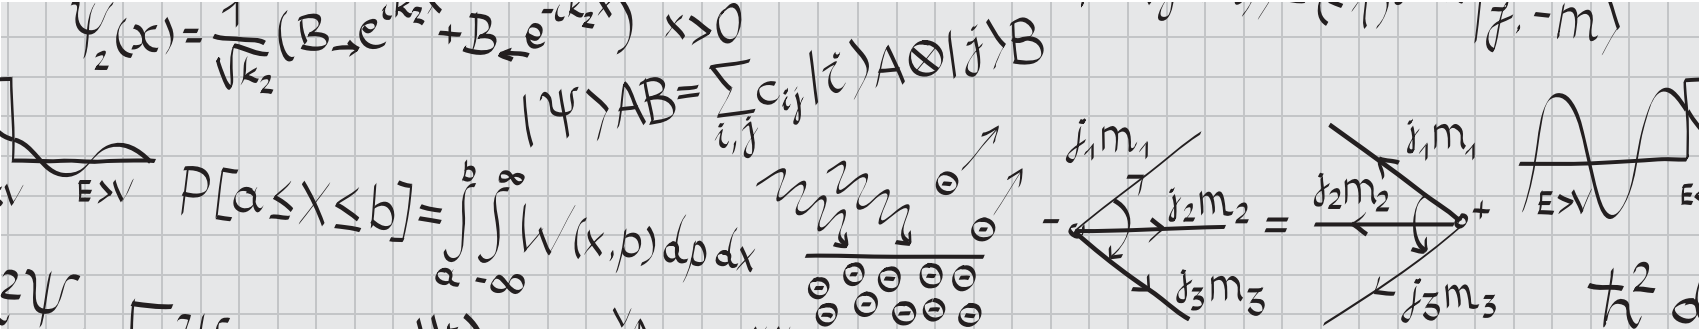 Ψ₂(x)=1/√k₂(B→e^{ik₂x}+B←e^{-ik₂x}) x>0
|j,-m⟩
|Ψ⟩AB=∑_{i,j}c_{ij}|i⟩A⊗|j⟩B
E>V
P[a≤X≤b]=∫_a^b∫_{-∞}^{∞}W(x,p)dp dx
⊖ ⊖
⊖ ⊖ ⊖ ⊖ ⊖
⊖ ⊖ ⊖ ⊖ ⊖
- j₁m₁ j₂m₂ j₃m₃ = j₁m₁ j₂m₂ j₃m₃ +
E>V
²Ψ
ħ²